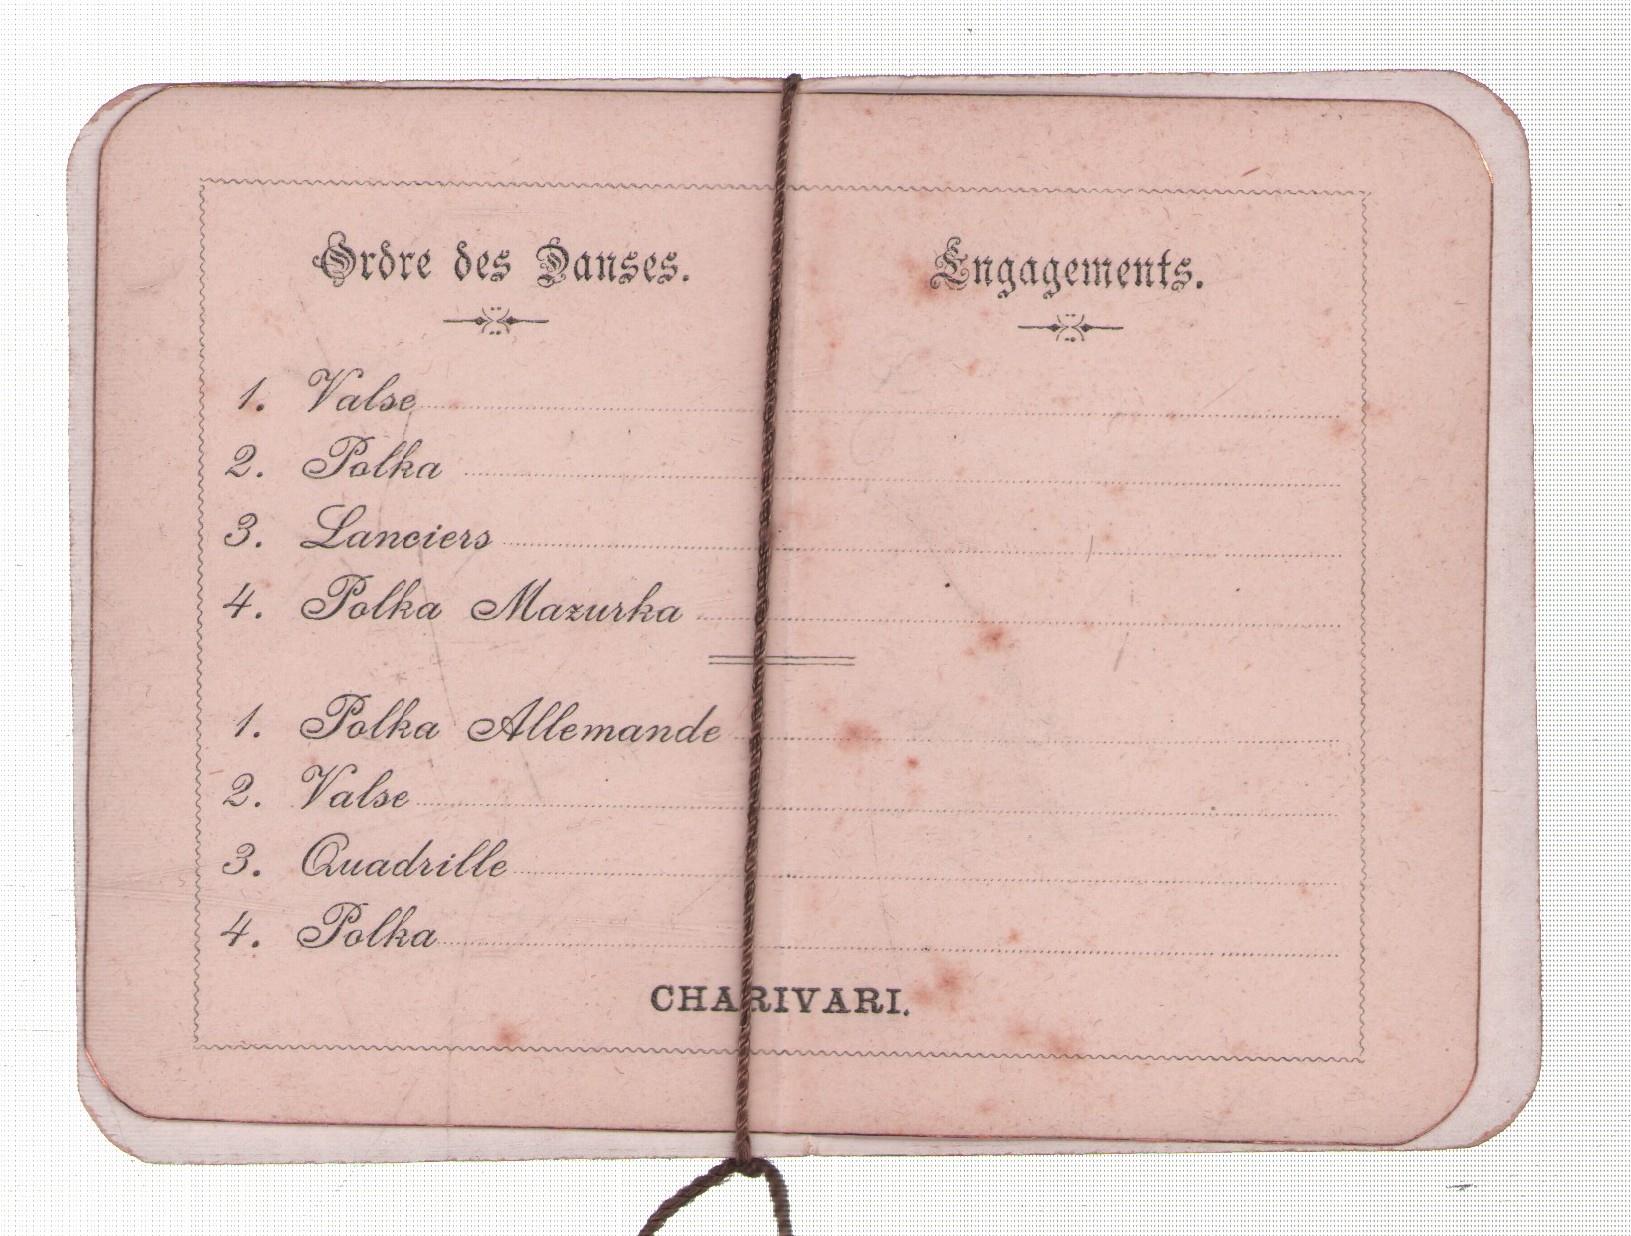 Ordre des Danses.
Engagements.
1. Valse
2. Polka
3. Lanciers
4. Polka Mazurka
1. Polka Allemande
2. Valse
3. Quadrille
4. Polka
CHARIVARI.